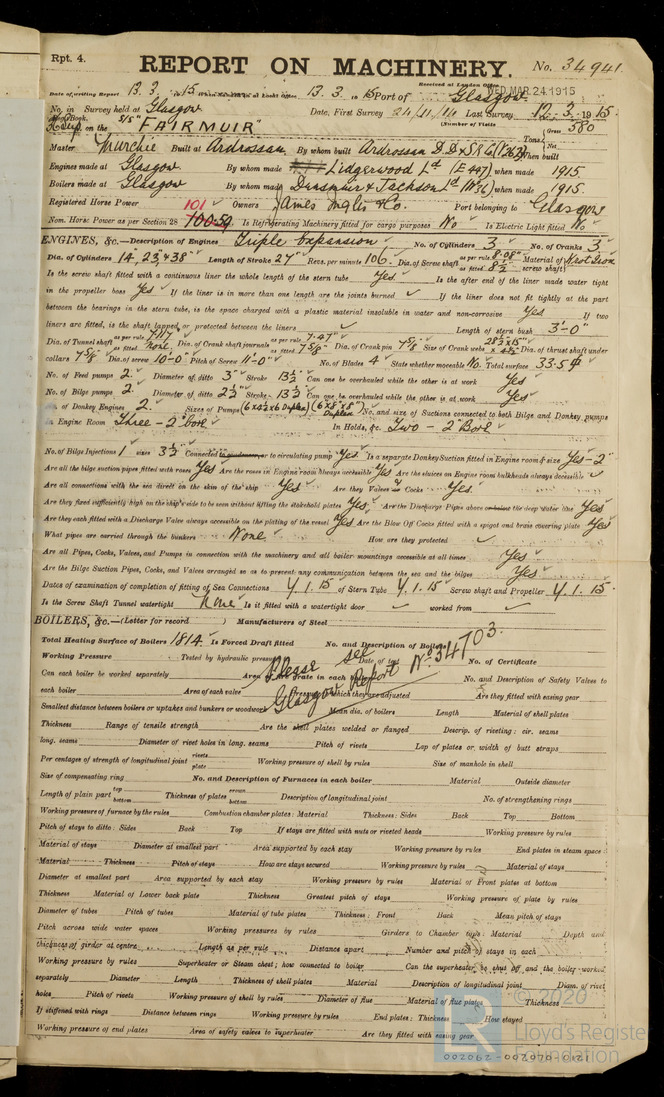 Rpt. 4.
REPORT ON MACHINERY.
No. 34941
Received at London Office WED. MAR. 24 1915
Date of writing Report 13.3.1915 When handed in at Local Office 13.3.1915 Port of Glasgow
No. in Survey held at Glasgow Date, First Survey 24/11/14 Last Survey 12.3.1915
Reg. Book. (Number of Visits
on the S/S "FAIRMUIR" Tons Gross 580 Net
Master Murchie Built at Ardrossan By whom built Ardrossan D.D & S B Co When built
Engines made at Glasgow By whom made Lidgerwood Ld (E 447) when made 1915
Boilers made at Glasgow By whom made Dunsmuir & Jackson Ld when made 1915
Registered Horse Power Owners James Inglis & Co. Port belonging to Glasgow
Nom. Horse Power as per Section 28 101 100.59 Is Refrigerating Machinery fitted for cargo purposes No Is Electric Light fitted No
ENGINES, &c.—Description of Engines Triple Expansion No. of Cylinders 3 No. of Cranks 3
Dia. of Cylinders 14, 23 & 38 Length of Stroke 27 Revs. per minute 106 Dia. of Screw shaft as per rule 8.08 as fitted 8½ Material of screw shaft Wrot Iron
Is the screw shaft fitted with a continuous liner the whole length of the stern tube Yes Is the after end of the liner made water tight
in the propeller boss Yes If the liner is in more than one length are the joints burned If the liner does not fit tightly at the part
between the bearings in the stern tube, is the space charged with a plastic material insoluble in water and non-corrosive Yes If two
liners are fitted, is the shaft lapped or protected between the liners Length of stern bush 3'-0"
Dia. of Tunnel shaft as per rule 7.117 as fitted none Dia. of Crank shaft journals as per rule 7.47 as fitted 7⅝ Dia. of Crank pin 7⅝ Size of Crank webs Dia. of thrust shaft under
collars 7⅝ Dia. of screw 10'-0 Pitch of Screw 11'-0" No. of Blades 4 State whether moveable No. Total surface 33.5
No. of Feed pumps 2 Diameter of ditto 3 Stroke 13½ Can one be overhauled while the other is at work Yes
No. of Bilge pumps 2 Diameter of ditto 2½ Stroke 13½ Can one be overhauled while the other is at work Yes
No. of Donkey Engines 2 Sizes of Pumps (6 x 4½ x 6 Duplex) (6 x 8 x 8 Duplex) No. and size of Suctions connected to both Bilge and Donkey pumps
In Engine Room Three - 2" bore In Holds, &c. Two - 2" Bore
No. of Bilge Injections 1 sizes 3½ Connected to condenser, or to circulating pump Yes Is a separate Donkey Suction fitted in Engine room & size Yes - 2"
Are all the bilge suction pipes fitted with roses Yes Are the roses in Engine room always accessible Yes Are the sluices on Engine room bulkheads always accessible
Are all connections with the sea direct on the skin of the ship Yes Are they Valves or Cocks Yes
Are they fixed sufficiently high on the ship's side to be seen without lifting the stokehold plates Yes Are the Discharge Pipes above or below the deep water line Yes
Are they each fitted with a Discharge Valve always accessible on the plating of the vessel Yes Are the Blow Off Cocks fitted with a spigot and brass covering plate Yes
What pipes are carried through the bunkers None How are they protected
Are all Pipes, Cocks, Valves, and Pumps in connection with the machinery and all boiler mountings accessible at all times Yes
Are the Bilge Suction Pipes, Cocks, and Valves arranged so as to prevent any communication between the sea and the bilges Yes
Dates of examination of completion of fitting of Sea Connections 4.1.15 of Stern Tube 4.1.15 Screw shaft and Propeller 4.1.15
Is the Screw Shaft Tunnel watertight None Is it fitted with a watertight door worked from
BOILERS, &c.—(Letter for record ) Manufacturers of Steel
Total Heating Surface of Boilers 1814 Is Forced Draft fitted No. and Description of Boilers
Please see Glasgow Report No 34703.
Working Pressure Tested by hydraulic pressure to Date of test No. of Certificate
Can each boiler be worked separately Area of fire grate in each boiler No. and Description of Safety Valves to
each boiler Area of each valve Pressure to which they are adjusted Are they fitted with easing gear
Smallest distance between boilers or uptakes and bunkers or woodwork Mean dia. of boilers Length Material of shell plates
Thickness Range of tensile strength Are the shell plates welded or flanged Descrip. of riveting: cir. seams
long. seams Diameter of rivet holes in long. seams Pitch of rivets Lap of plates or width of butt straps
Per centages of strength of longitudinal joint rivets plate Working pressure of shell by rules Size of manhole in shell
Size of compensating ring No. and Description of Furnaces in each boiler Material Outside diameter
Length of plain part top bottom Thickness of plates crown bottom Description of longitudinal joint No. of strengthening rings
Working pressure of furnace by the rules Combustion chamber plates: Material Thickness: Sides Back Top Bottom
Pitch of stays to ditto: Sides Back Top If stays are fitted with nuts or riveted heads Working pressure by rules
Material of stays Diameter at smallest part Area supported by each stay Working pressure by rules End plates in steam space
Material Thickness Pitch of stays How are stays secured Working pressure by rules Material of stays
Diameter at smallest part Area supported by each stay Working pressure by rules Material of Front plates at bottom
Thickness Material of Lower back plate Thickness Greatest pitch of stays Working pressure of plate by rules
Diameter of tubes Pitch of tubes Material of tube plates Thickness: Front Back Mean pitch of stays
Pitch across wide water spaces Working pressures by rules Girders to Chamber tops: Material Depth and
thickness of girder at centre Length as per rule Distance apart Number and pitch of stays in each
Working pressure by rules Superheater or Steam chest; how connected to boiler Can the superheater be shut off and the boiler worked
separately Diameter Length Thickness of shell plates Material Description of longitudinal joint Diam. of rivet
holes Pitch of rivets Working pressure of shell by rules Diameter of flue Material of flue plates Thickness
If stiffened with rings Distance between rings Working pressure by rules End plates: Thickness How stayed
Working pressure of end plates Area of safety valves to superheater Are they fitted with easing gear
© 2020
Lloyd's Register
Foundation